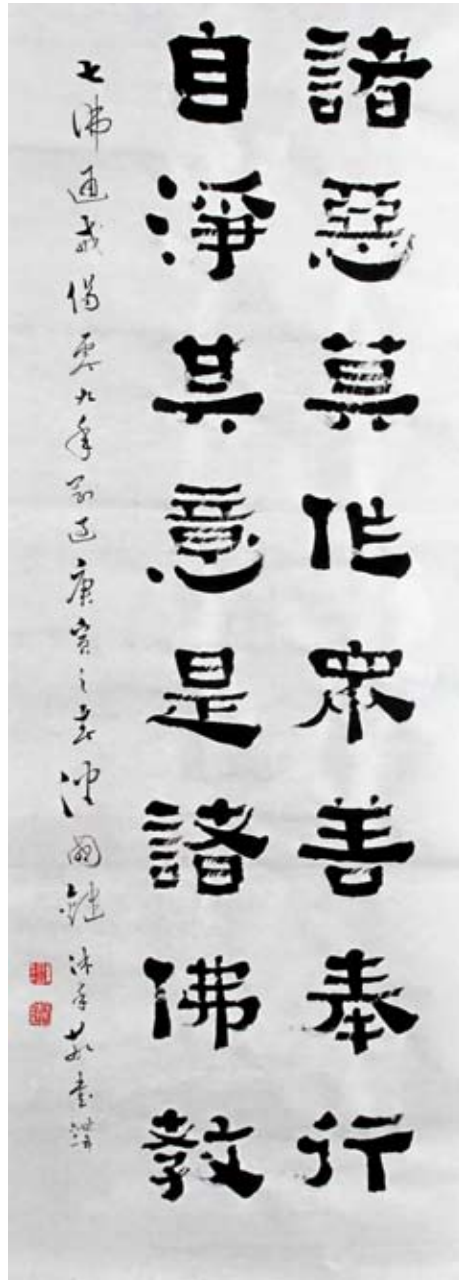 諸惡莫作眾善奉行
自淨其意是諸佛教
七佛通戒偈 庚寅之春